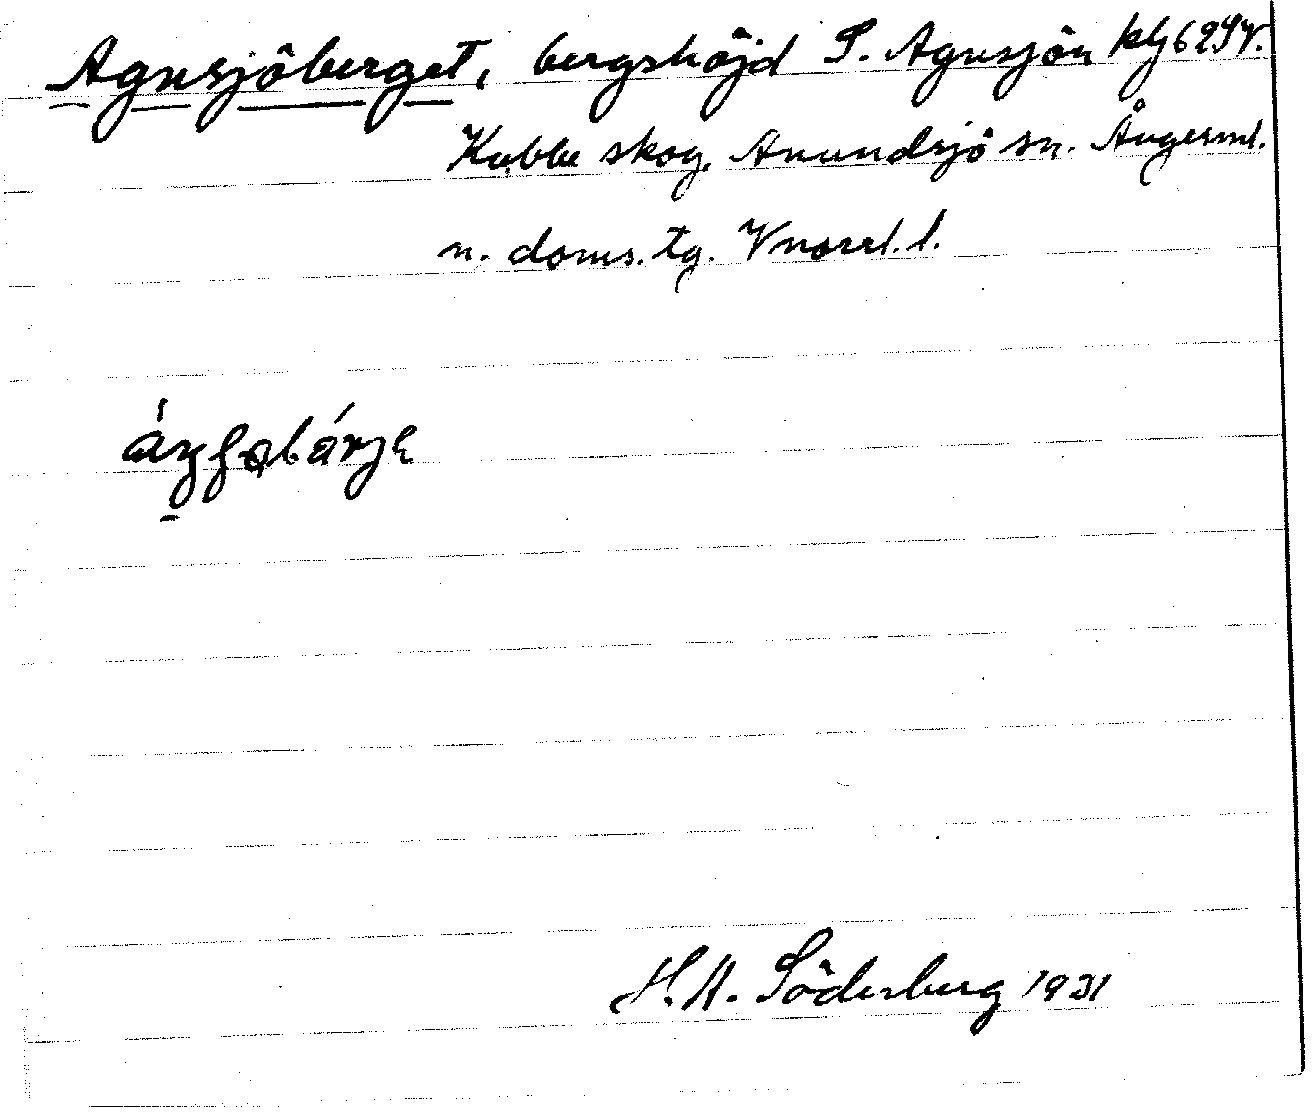 Agnsjöberget, bergshöjd S. Agnsjön
Kubbe skog, Anundsjö sn. Ångerml.
n. doms. tg. Vnorrl. l.
H. A. Söderberg 1931